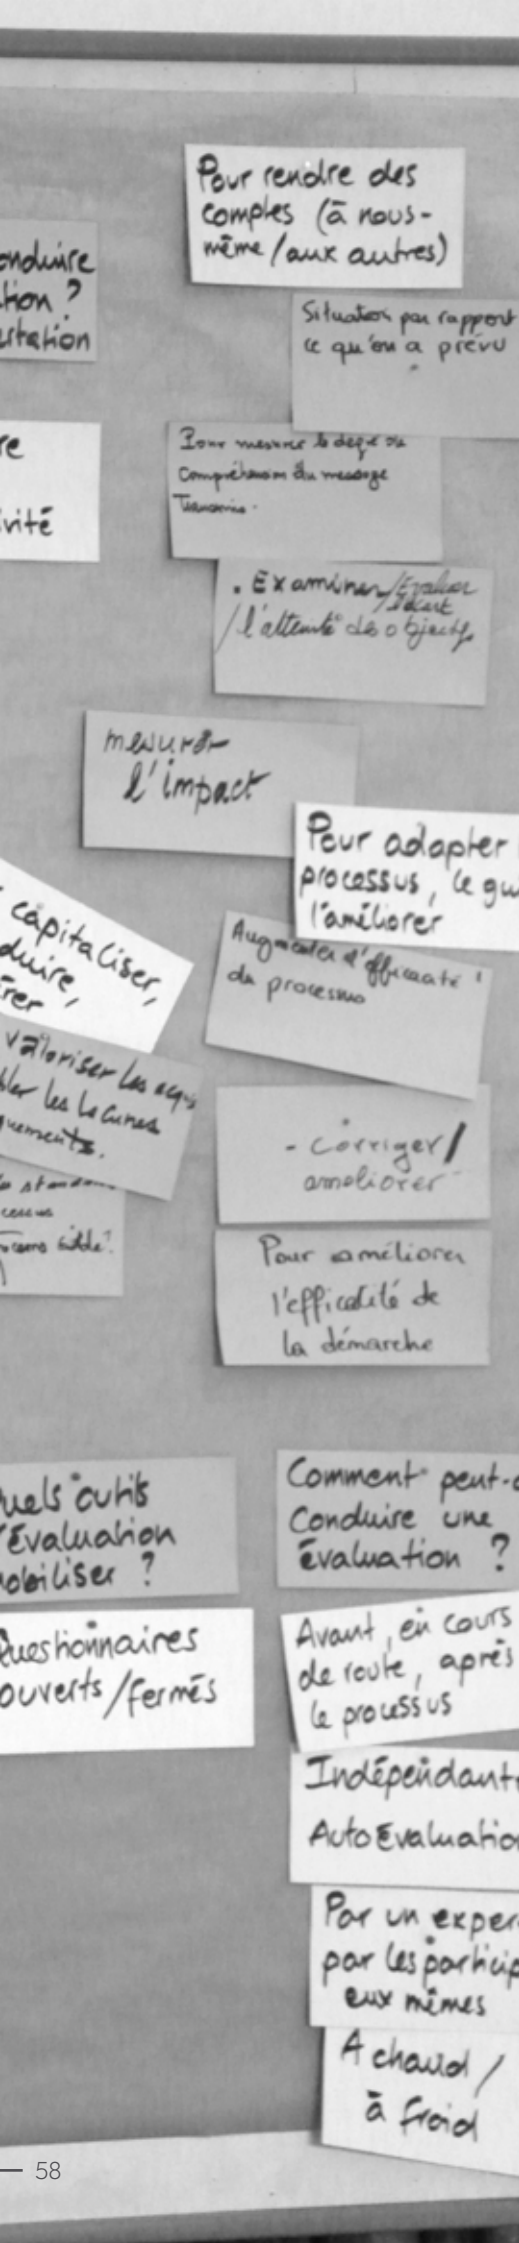 Pour rendre des
comptes (à nous-
même / aux autres)
onduire
tion ?
rtation
Situation par rapport
ce qu'on a prévu
re
ivité
Pour mesurer le degré de
Compréhension du message
Transmis.
. Examiner / Evaluer
l'écart
/ l'atteinte des objectifs
mesurer
l'impact
Pour adapter l
processus, le gu
l'améliorer
capitaliser,
duire,
érer
Augmenter l'efficacité
du processus
valoriser les acquis
bler les lacunes
quements.
- corriger /
améliorer
standa
cessus
cible.
Pour améliorer
l'efficacité de
la démarche
uels outils
'évaluation
obiliser ?
Comment peut-o
Conduire une
évaluation ?
Questionnaires
ouverts / fermés
Avant, en cours
de route, après
le processus
Indépendant
Auto Evaluatio
Par un exper
par les particip
eux mêmes
A chaud /
à froid
58